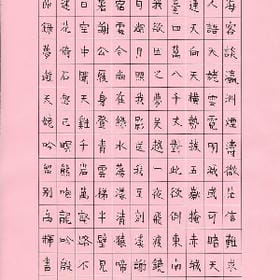 海客談瀛洲煙濤微茫信難求
人語天姥雲霓明滅或可睹天
連天向天橫勢拔五嶽掩赤城
臺四萬八千丈對此欲倒東南
我欲因之夢吳越一夜飛渡鏡
湖月照我影送我至剡溪謝公
宿處今尚在淥水蕩漾清猿啼
著謝公屐身登青雲梯半壁見
日空中聞天雞千巖萬轉路不
迷花倚石忽已暝熊咆龍吟殷
節錄夢遊天姥吟留別高輝書